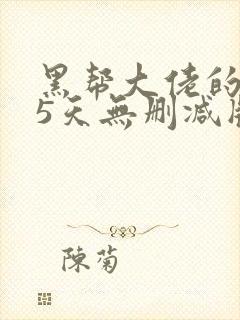 黑帮大佬的
5天無删减版
陳菊